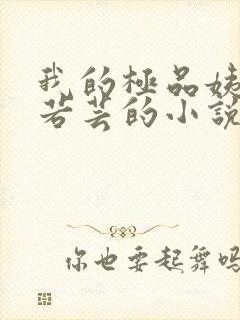 我的極品姨
若芸的小說
你也要起舞嗎